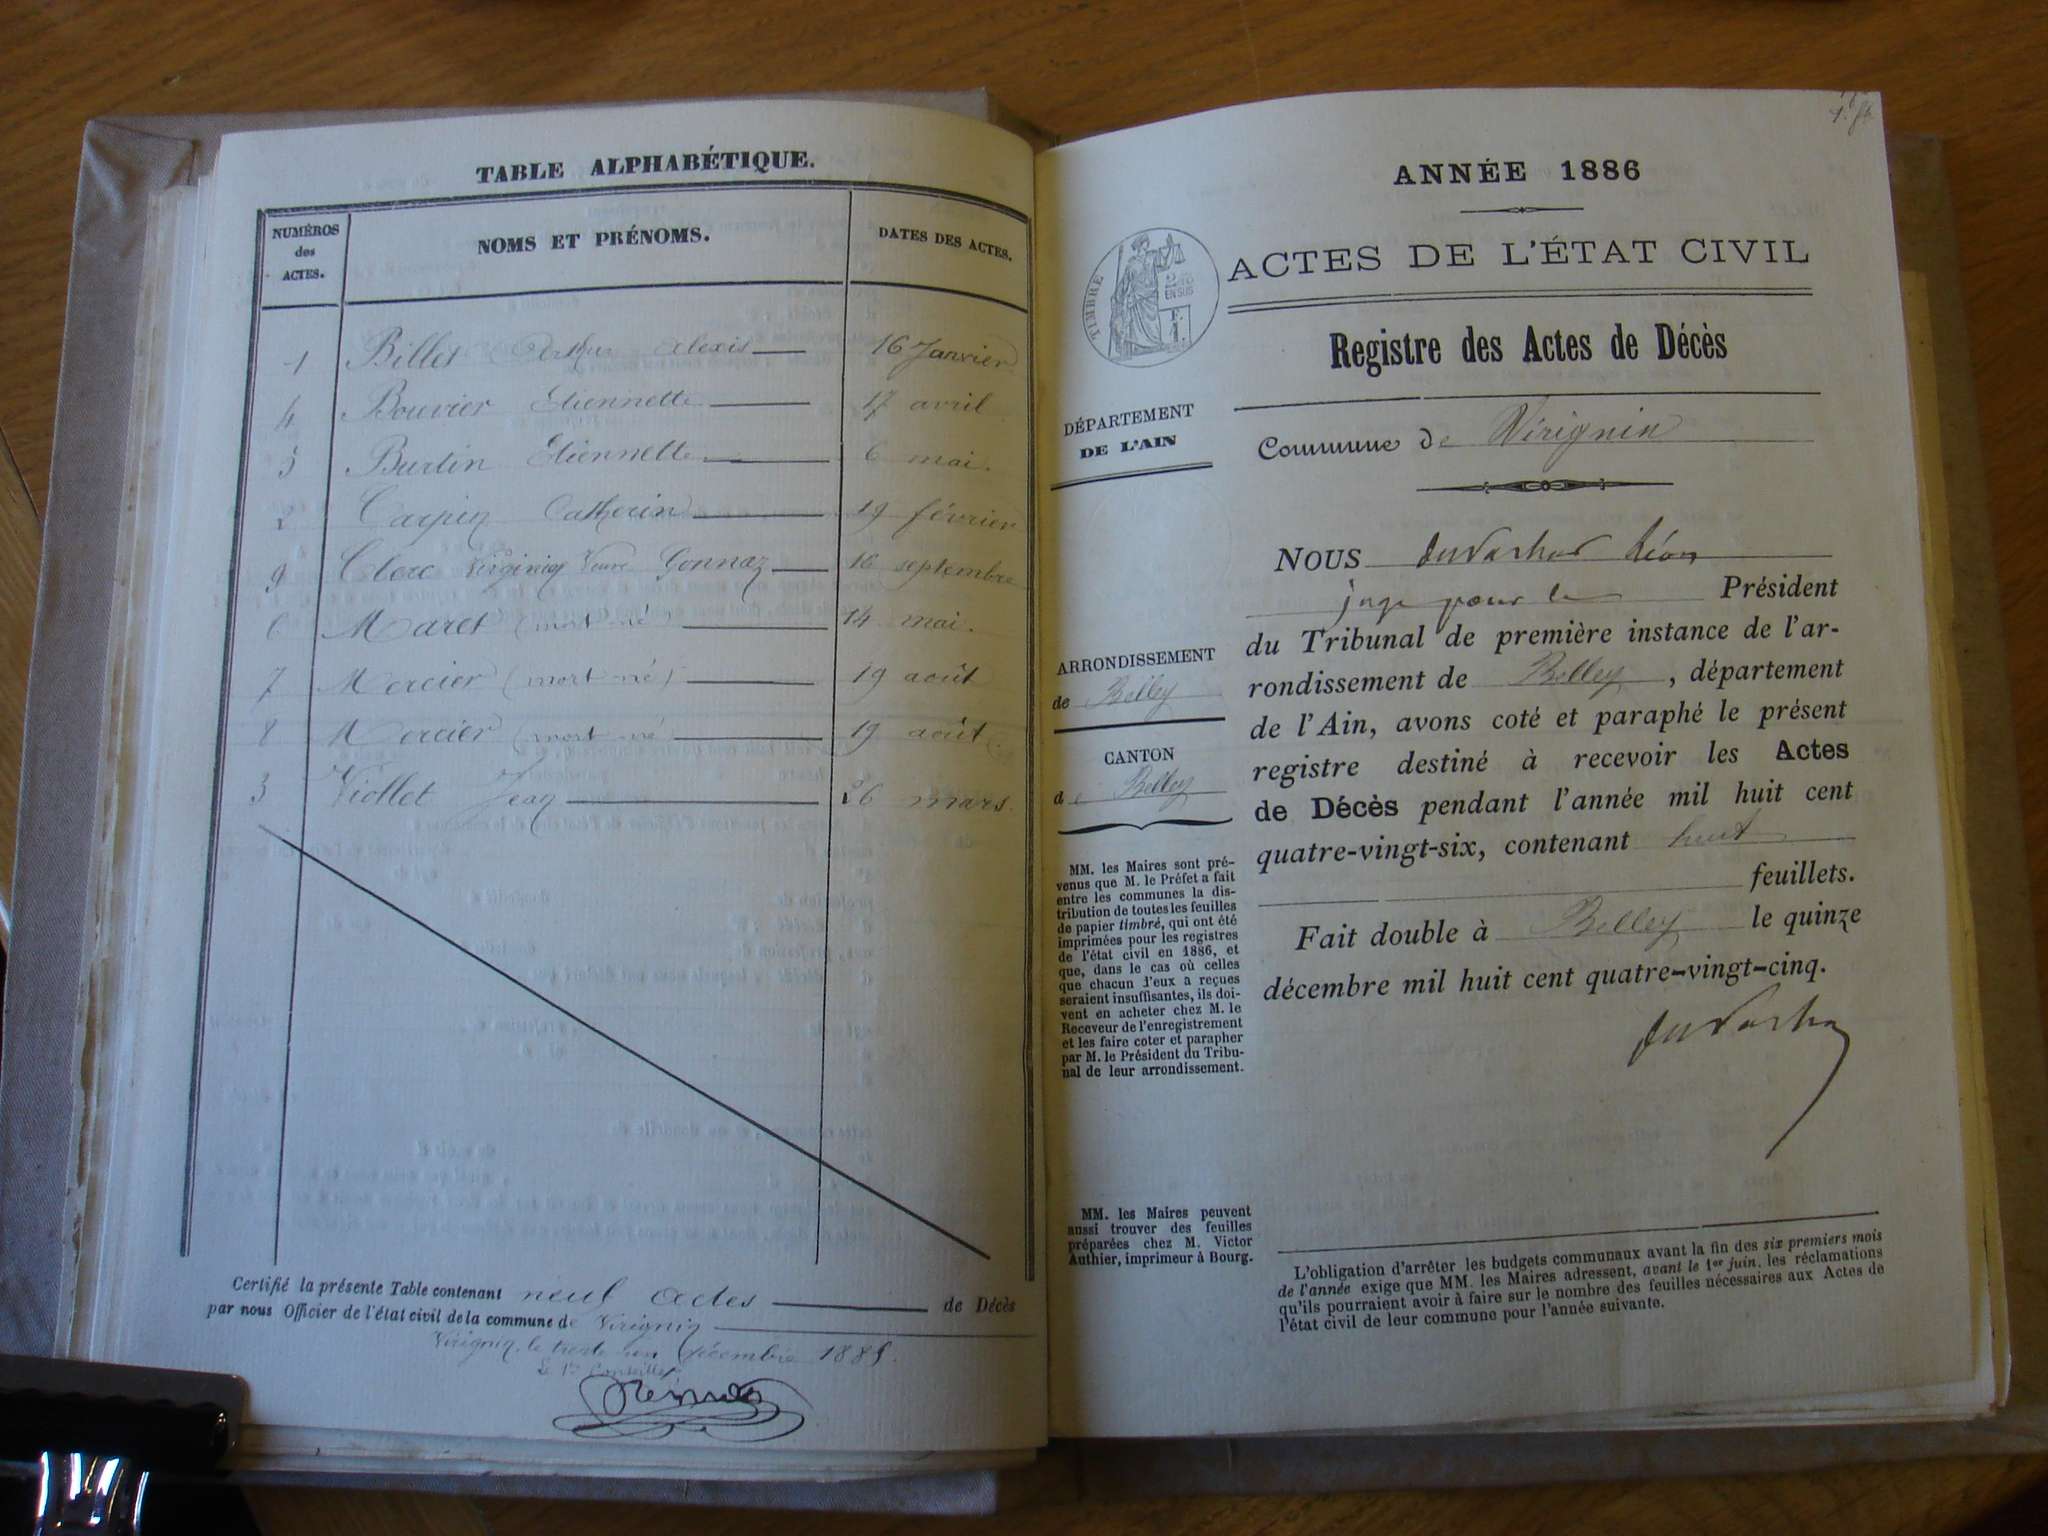 TABLE ALPHABÉTIQUE.
NUMÉROS des ACTES. NOMS ET PRÉNOMS. DATES DES ACTES.
1 Billet Arthur Alexis 16 Janvier
4 Bouvier Etiennette 17 avril
5 Burtin Etiennette 6 mai.
2 Carpin Catherin 19 février
9 Clerc Virginie Veuve Gonnaz 16 septembre
6 Maret (mort né) 14 mai.
7 Mercier (mort né) 19 août
8 Mercier (mort né) 19 août
3 Viollet Jean 26 mars.
Certifié la présente Table contenant neuf actes de Décès
par nous Officier de l'état civil de la commune de Virignin
Virignin, le trente un décembre 1885.
Le 1er Conseiller
ANNÉE 1886
ACTES DE L'ÉTAT CIVIL
TIMBRE
2/10
EN SUS
Registre des Actes de Décès
DÉPARTEMENT
DE L'AIN
Commune de Virignin
NOUS
juge pour le Président
du Tribunal de première instance de l'ar-
rondissement de Belley, département
de l'Ain, avons coté et paraphé le présent
registre destiné à recevoir les Actes
de Décès pendant l'année mil huit cent
quatre-vingt-six, contenant huit
feuillets.
Fait double à Belley le quinze
décembre mil huit cent quatre-vingt-cinq.
ARRONDISSEMENT
de Belley
CANTON
de Belley
MM. les Maires sont pré-
venus que M. le Préfet a fait
entre les communes la dis-
tribution de toutes les feuilles
de papier timbré, qui ont été
imprimées pour les registres
de l'état civil en 1886, et
que, dans le cas où celles
que chacun d'eux a reçues
seraient insuffisantes, ils doi-
vent en acheter chez M. le
Receveur de l'enregistrement
et les faire coter et parapher
par M. le Président du Tribu-
nal de leur arrondissement.
MM. les Maires peuvent
aussi trouver des feuilles
préparées chez M. Victor
Authier, imprimeur à Bourg.
L'obligation d'arrêter les budgets communaux avant la fin des six premiers mois
de l'année exige que MM. les Maires adressent, avant le 1er juin, les réclamations
qu'ils pourraient avoir à faire sur le nombre des feuilles nécessaires aux Actes de
l'état civil de leur commune pour l'année suivante.